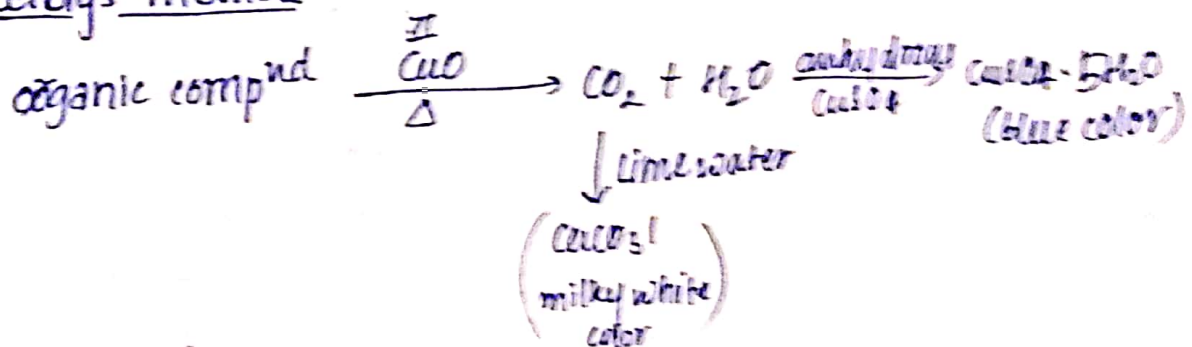 method
II
organic compnd CuO → CO2 + H2O anhydrous CuSO4 · 5H2O
Δ CuSO4 (blue color)
↓ Lime water
CaCO3↓
milky white
color